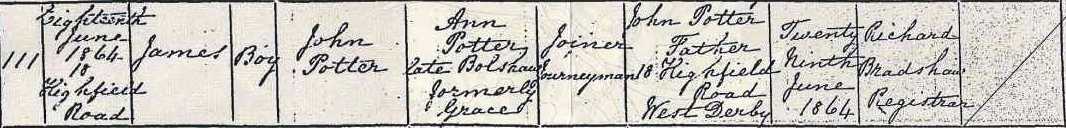 111
Eighteenth
June
1864
18
Highfield
Road
James
Boy
John
Potter
Ann
Potter
late Bolshaw
formerly
Grace
Joiner
Journeyman
John Potter
Father
18 Highfield
Road
West Derby
Twenty
Ninth
June
1864
Richard
Bradshaw
Registrar